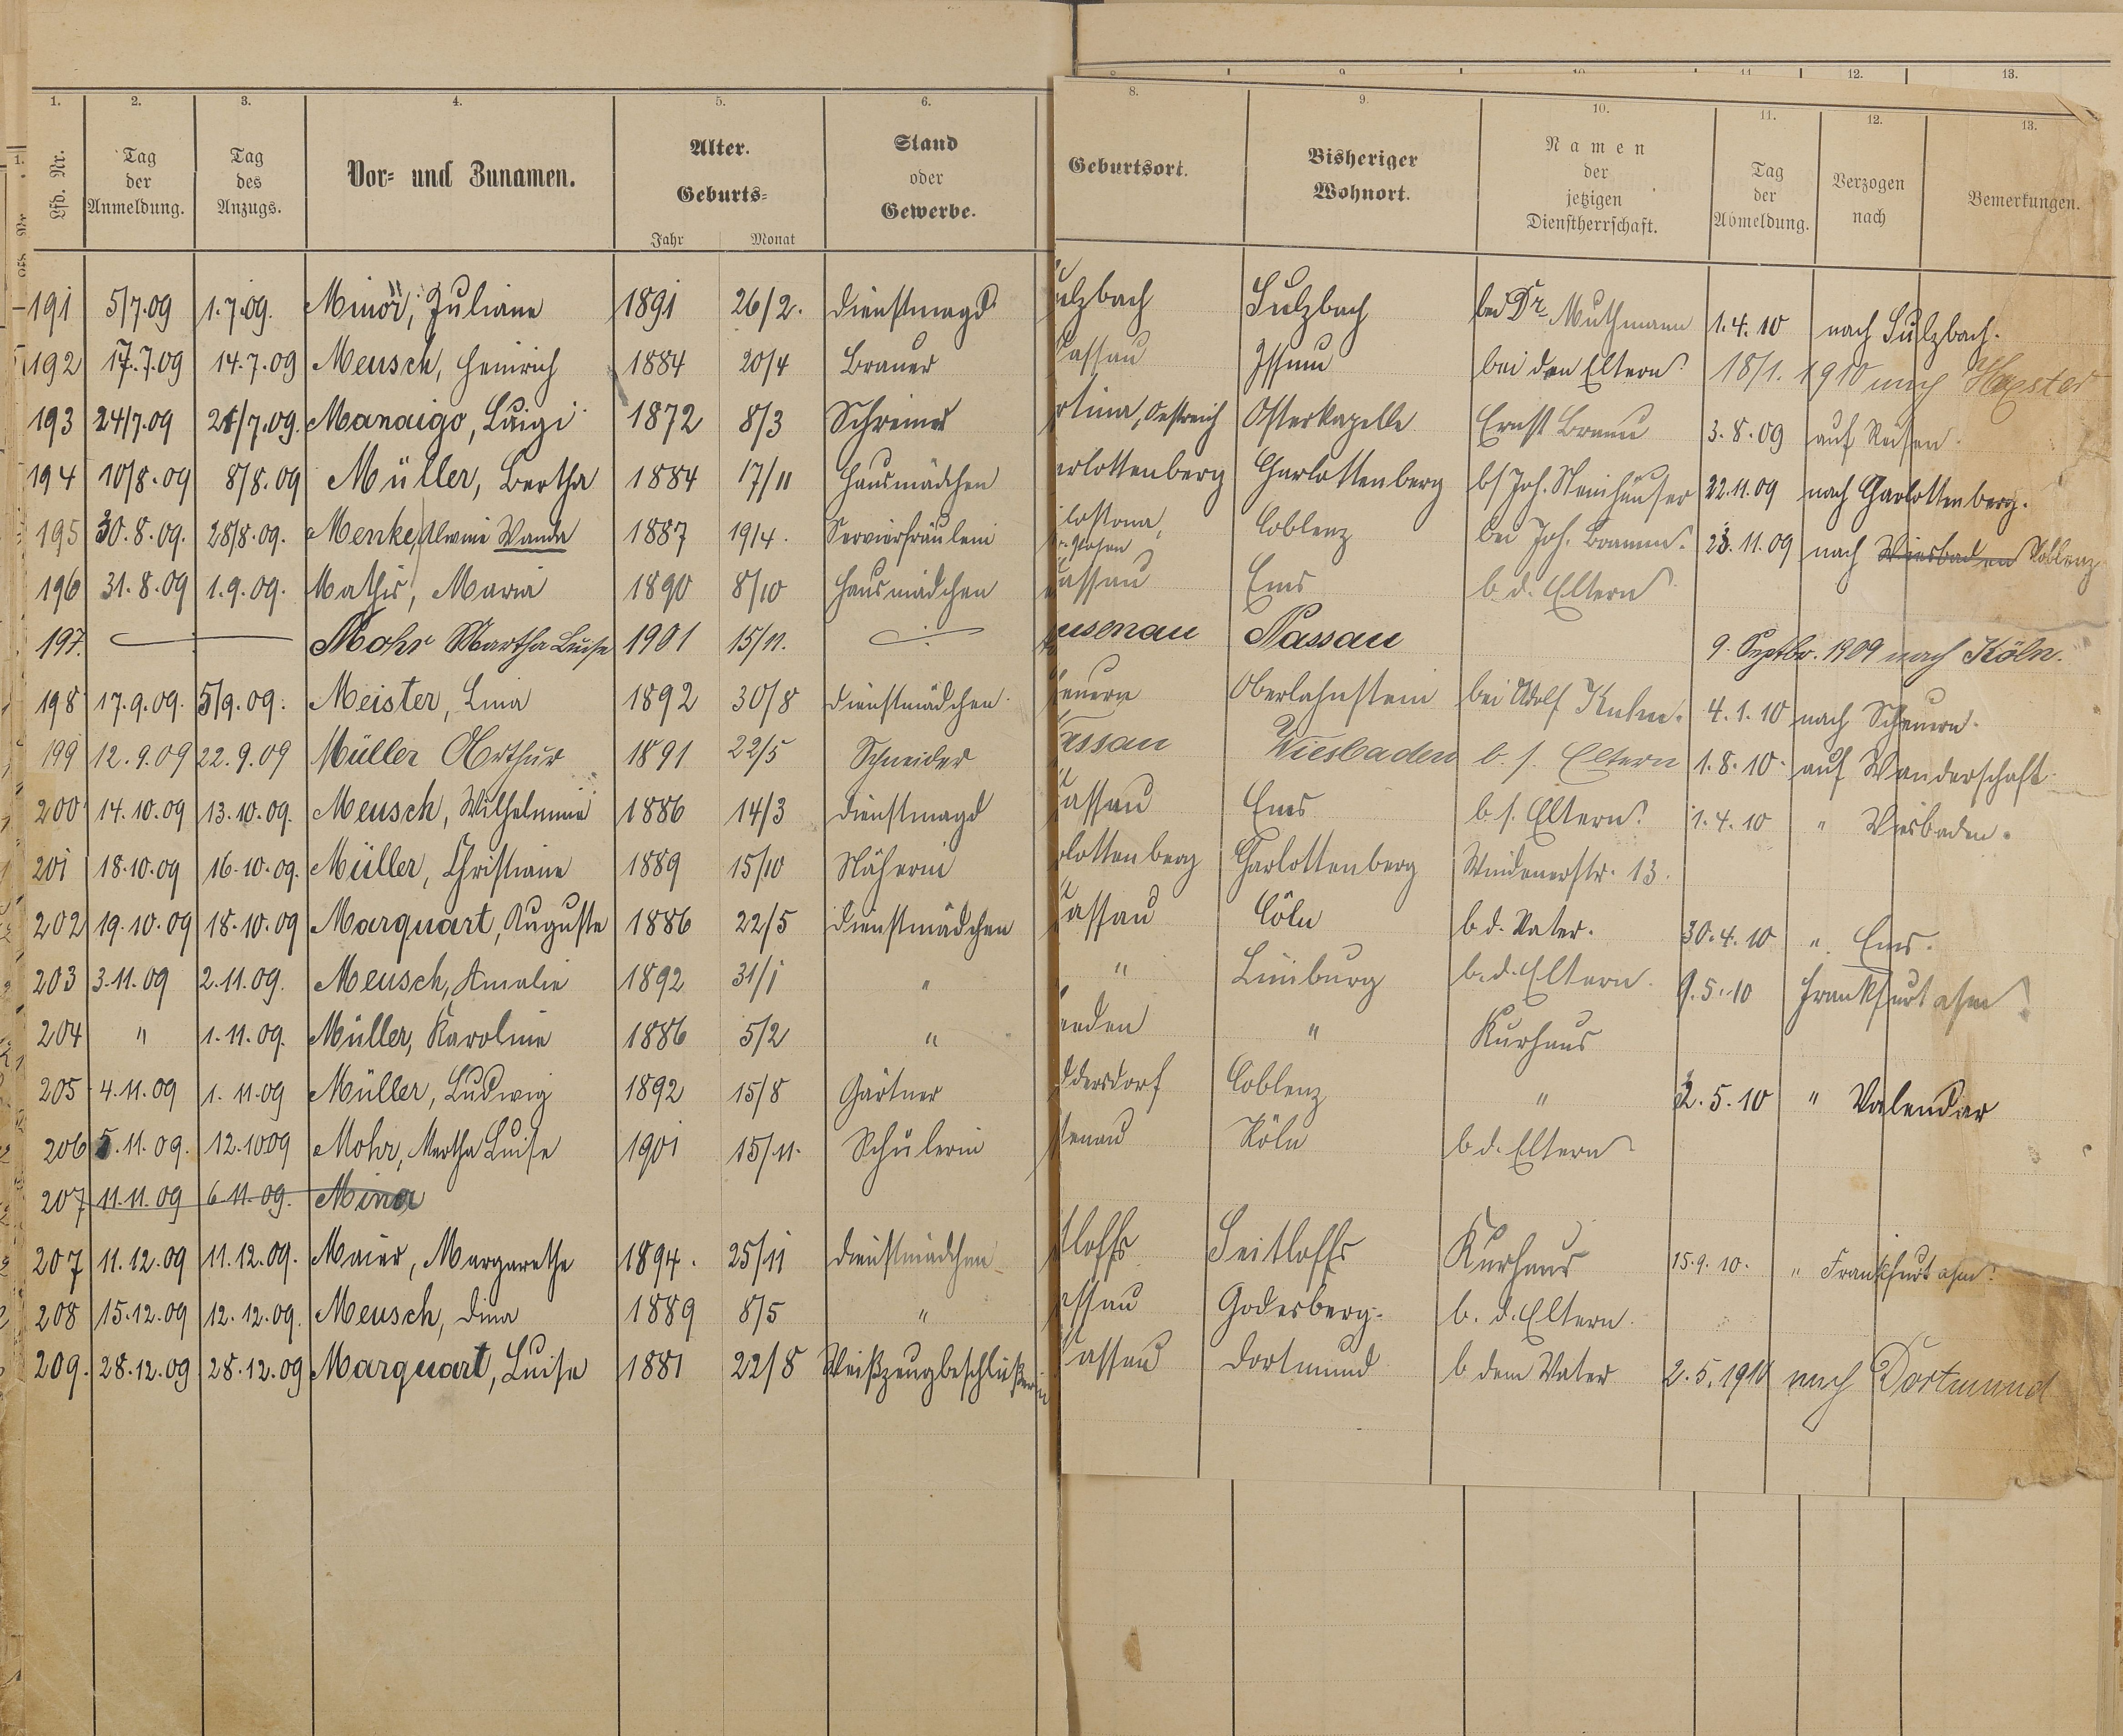 8. 9. 10. 11. 12. 13.
1. 2. 3. 4. 5. 6. 8. 9. 10. 11. 12. 13.
Lfd. Nr. Tag der Anmeldung. Tag des Anzugs. Vor- und Zunamen. Alter. Geburts- Jahr Monat Stand oder Gewerbe. Geburtsort. Bisheriger Wohnort. Namen der jetzigen Dienstherrschaft. Tag der Abmeldung. Verzogen nach Bemerkungen.
191 5/7.09 1.7.09. Minor, Juliane 1891 26/2. Dienstmagd ulzbach Sulzbach bei Dr. Muthmann 1.4.10 nach Sulzbach.
192 17.7.09 14.7.09 Meusch, Heinrich 1884 20/4 Brauer assau Issum bei den Eltern 18/1. 1910 nach
193 24/7.09 21/7.09. Manaigo, Luigi 1872 8/3 Schreiner rtina, Oestreich Osterkapelle Ernst Braun 3.8.09 auf Reisen.
194 10/8.09 8/8.09 Müller, Bertha 1884 17/11 Hausmädchen arlottenberg Charlottenberg b/ Joh. Steinhäuser 22.11.09 nach Charlottenberg.
195 30.8.09. 28/8.09. Menke, Alwine Wanda 1887 19/4. Servierfräulein Coblenz bei Joh. 23.11.09 nach Wiesbaden Coblenz
196 31.8.09 1.9.09. Mathis, Maria 1890 8/10 Hausmädchen assau Ems b. d. Eltern
197. Mohr Martha Luise 1901 15/11. usenau Nassau 9. Septbr. 1909 nach Köln.
198 17.9.09. 5/9.09. Meister, Lina 1892 30/8 Dienstmädchen. euern Oberlahnstein bei Adolf Kuhn. 4.1.10 nach Scheuern.
199 12.9.09 22.9.09 Müller Arthur 1891 22/5 Schneider assau Wiesbaden b. s. Eltern 1.8.10. auf Wanderschaft
200 14.10.09 13.10.09. Meusch, Wilhelmine 1886 14/3 Dienstmagd assau Ems b s. Eltern 1.4.10 " Wiesbaden.
201 18.10.09 16.10.09. Müller, Christiane 1889 15/10 Näherin rlottenberg Charlottenberg Windenerstr. 13.
202 19.10.09 18.10.09 Marquart, Auguste 1886 22/5 Dienstmädchen assau Cöln b d. Vater. 30.4.10 " Ems.
203 3.11.09 2.11.09. Meusch, Amalie 1892 31/1 " " Limburg b. d. Eltern. 9.5.10 Frankfurt a/m
204 " 1.11.09. Müller, Karoline 1886 5/2 " nden " Kurhaus
205 4.11.09 1.11.09 Müller, Ludwig 1892 15/8 Gärtner ddersdorf Coblenz " 2.5.10 " Valendar
206 5.11.09. 12.1009 Mohr, Martha Luise 1901 15/11. Schülerin enau Köln b d. Eltern
207 11.11.09 6.11.09. Mina
207 11.12.09 11.12.09. Maier, Margarethe 1894. 25/11 Dienstmädchen tloffs Seitloffs Kurhaus 15.9.10. " Frankfurt a/m.
208 15.12.09 12.12.09. Meusch, Dina 1889 8/5 " assau Godesberg. b. d. Eltern.
209. 28.12.09 28.12.09 Marquart, Luise 1881 22/8 Weißzeugbeschließerin assau Dortmund b dem Vater 2.5.1910 nach Dortmund